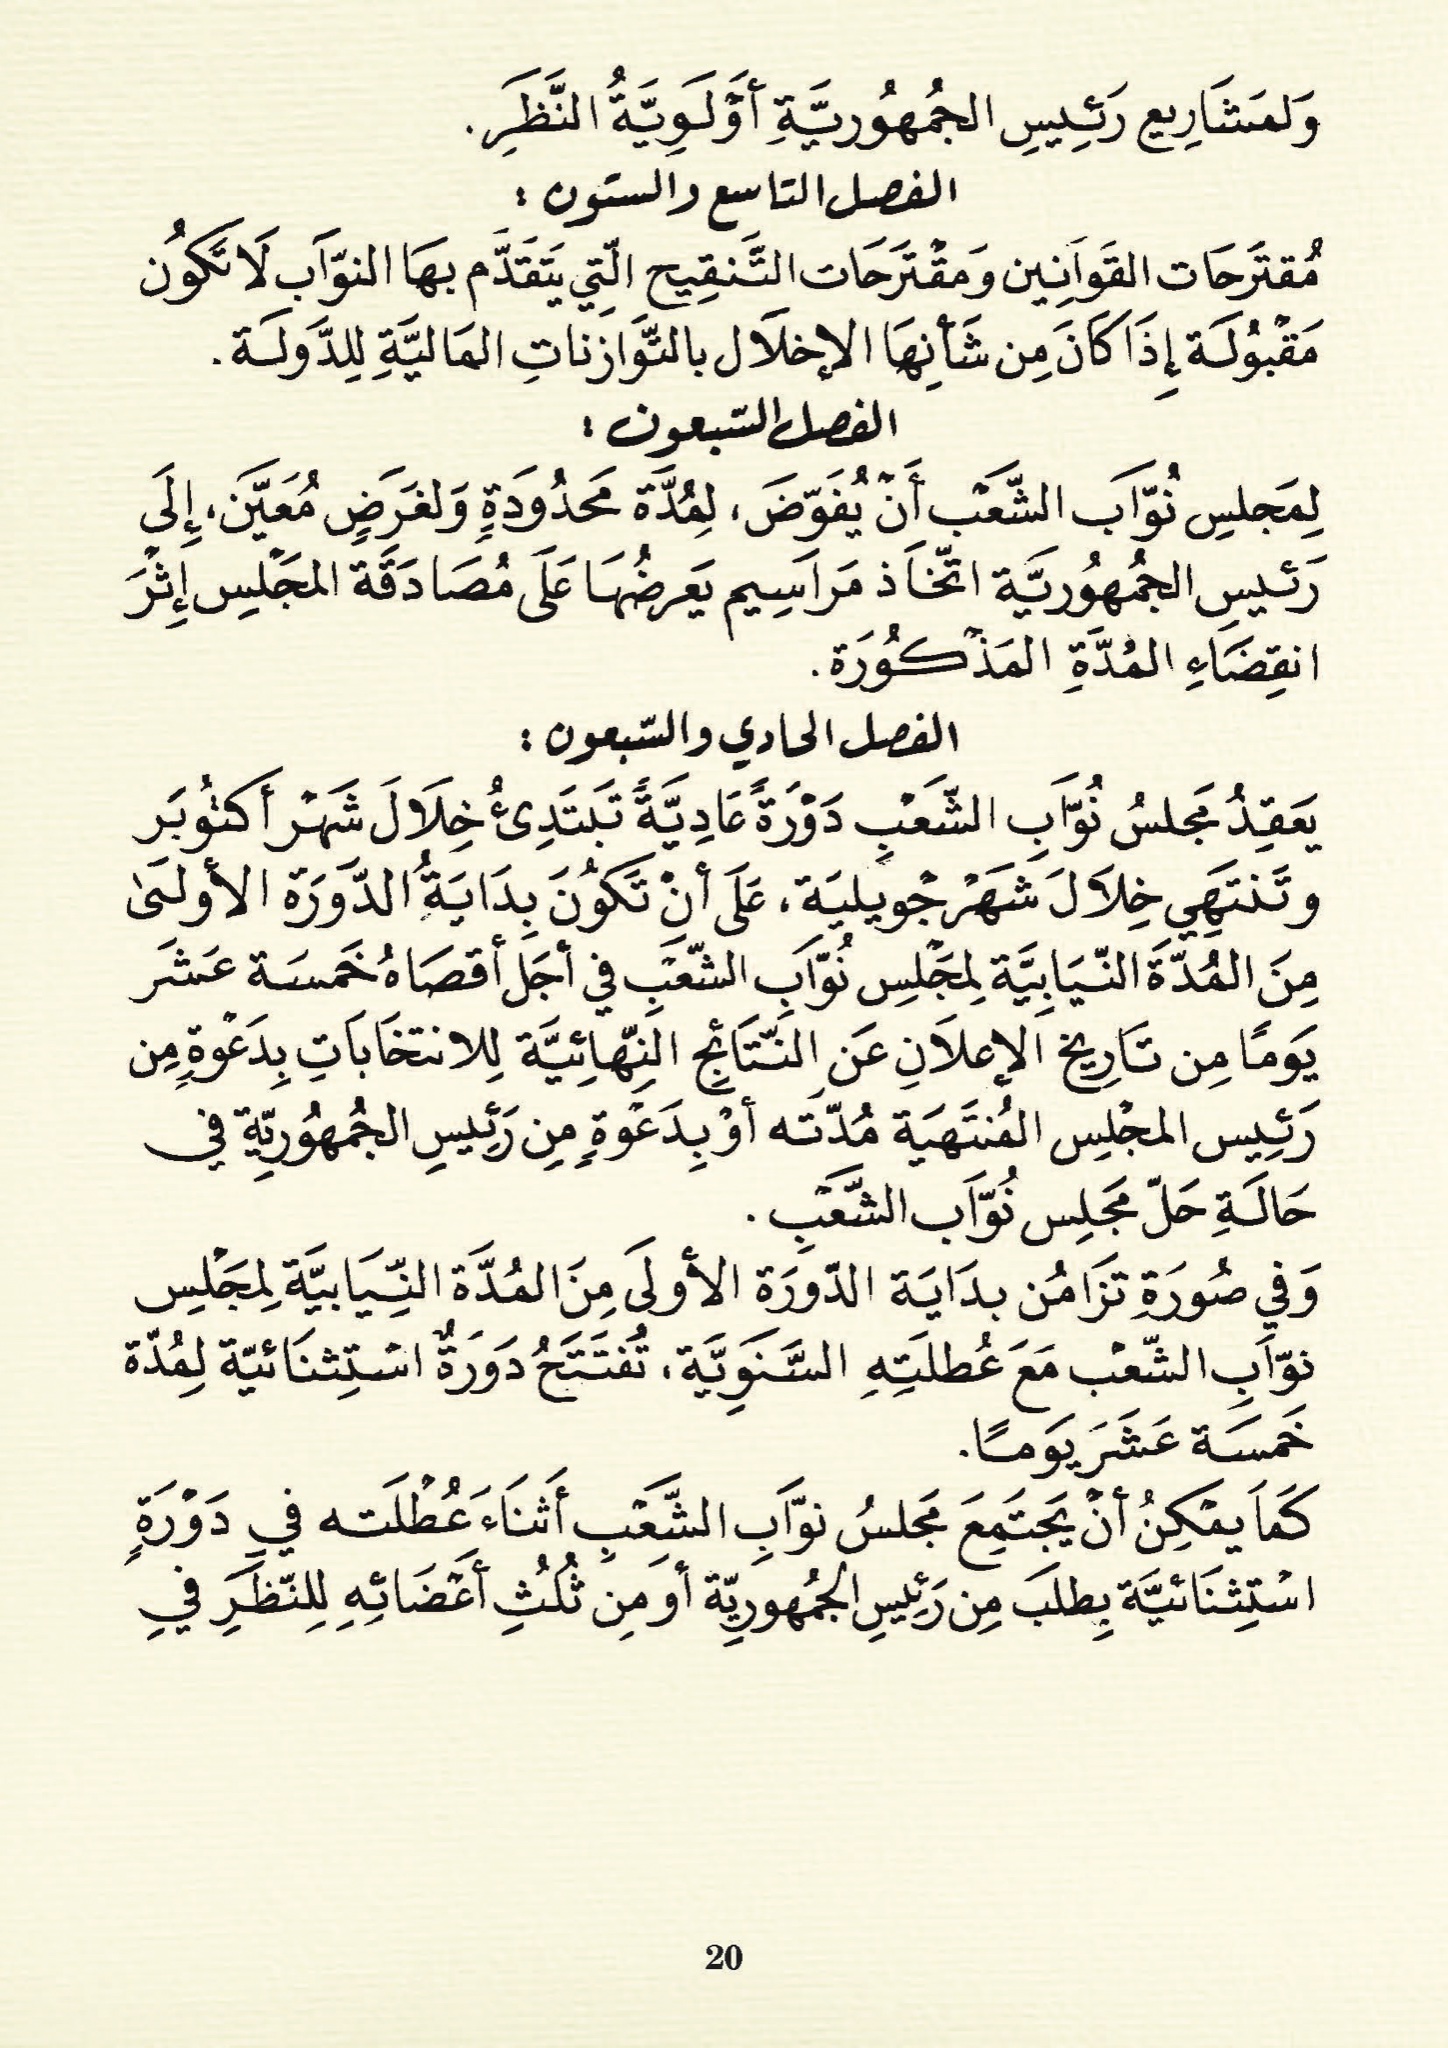 وَلمَشَارِيع رَئِيسِ الجُمهُوريَّةِ أوَّلَوِيَّةُ النَّظَرِ.
الفصل التاسع والستون :
مُقتَرَحَات القَوَانِين وَمقْتَرَحَات التَّنقِيح الّتِي يَتَقَدَّم بهَا النوّاَب لَا تَكُون
مَقْبُولَة إِذَا كَانَ مِن شَأنِهَا الإخلَال بالتَّوَازنَاتِ المَاليَّةِ لِلدَّولَة.
الفصل السّبعون :
لِمَجلسِ نُوّاَب الشَّعَب أَنْ يُفَوّضَ، لِمُدَّة مَحدُودَةٍ وَلغَرَضٍ مُعَيَّن، إِلَى
رَئيسِ الجمُهُوريَّة اتّخاَذ مَرَاسِيم يَعرضُهَا عَلَى مُصَادَقَة المجَلْسِ إثْرَ
انقِضَاءِ المُدَّةِ المَذْكُورَة.
الفصل الحادي والسّبعون :
يَعقِدُ مَجلسُ نُوّاَبِ الشَّعَبِ دَوْرَةً عَادِيَّةً تَبتَدِئُ خِلَالَ شَهْر أكتُوبَر
وتَنتهَِي خِلَالَ شَهْر جْويليَة، عَلَى أنْ تَكُونَ بِدَايَةُ الدَّورَة الأولَى
مِنَ المُدَّةَ النّيَابِيَّة لِمجَلْسِ نُوّاَبِ الشّعَبِ في أجَل أقصَاهُ خَمسَة عَشَر
يَومًا مِن تَارِيخ الإعلَانِ عَنِ النَّتَائِجِ النِّهَائِيَّة لِلانتخَابَاتِ بِدَعْوةٍ مِن
رَئِيس المجْلِس المُنتَهيَة مُدّتَه أوْ بِدَعْوةٍ مِن رَئِيسِ الجُمهُوريّةِ في
حَالَةِ حَلّ مَجَلِس نُوّاَب الشَّعَبِ.
وَفي صُورَةِ تزَامُن بدَايَة الدّورَة الأولَى مِنَ المُدَّة النِّيَابيَّة لِمجَلْسِ
نوّاَبِ الشّعْب مَعَ عُطلَتِهِ السَّنَوِيَّة، تُفتَتَحُ دَورَةٌ اسْتِثنَائيّة لِمُدّة
خَمسَة عَشَرَ يَومًا.
كَمَا يمْكِنُ أنْ يَجتَمِعَ مَجلسُ نوّاَبِ الشَّعَبِ أثنَاءَ عُطْلَته في دَوْرَةٍ
اسْتِثنَائيَّة بِطلَبَ مِن رَئِيسِ الجُمُهوريّة أو مِن ثُلُثِ أعْضَائِهِ لِلنّظَرِ فيِ
20